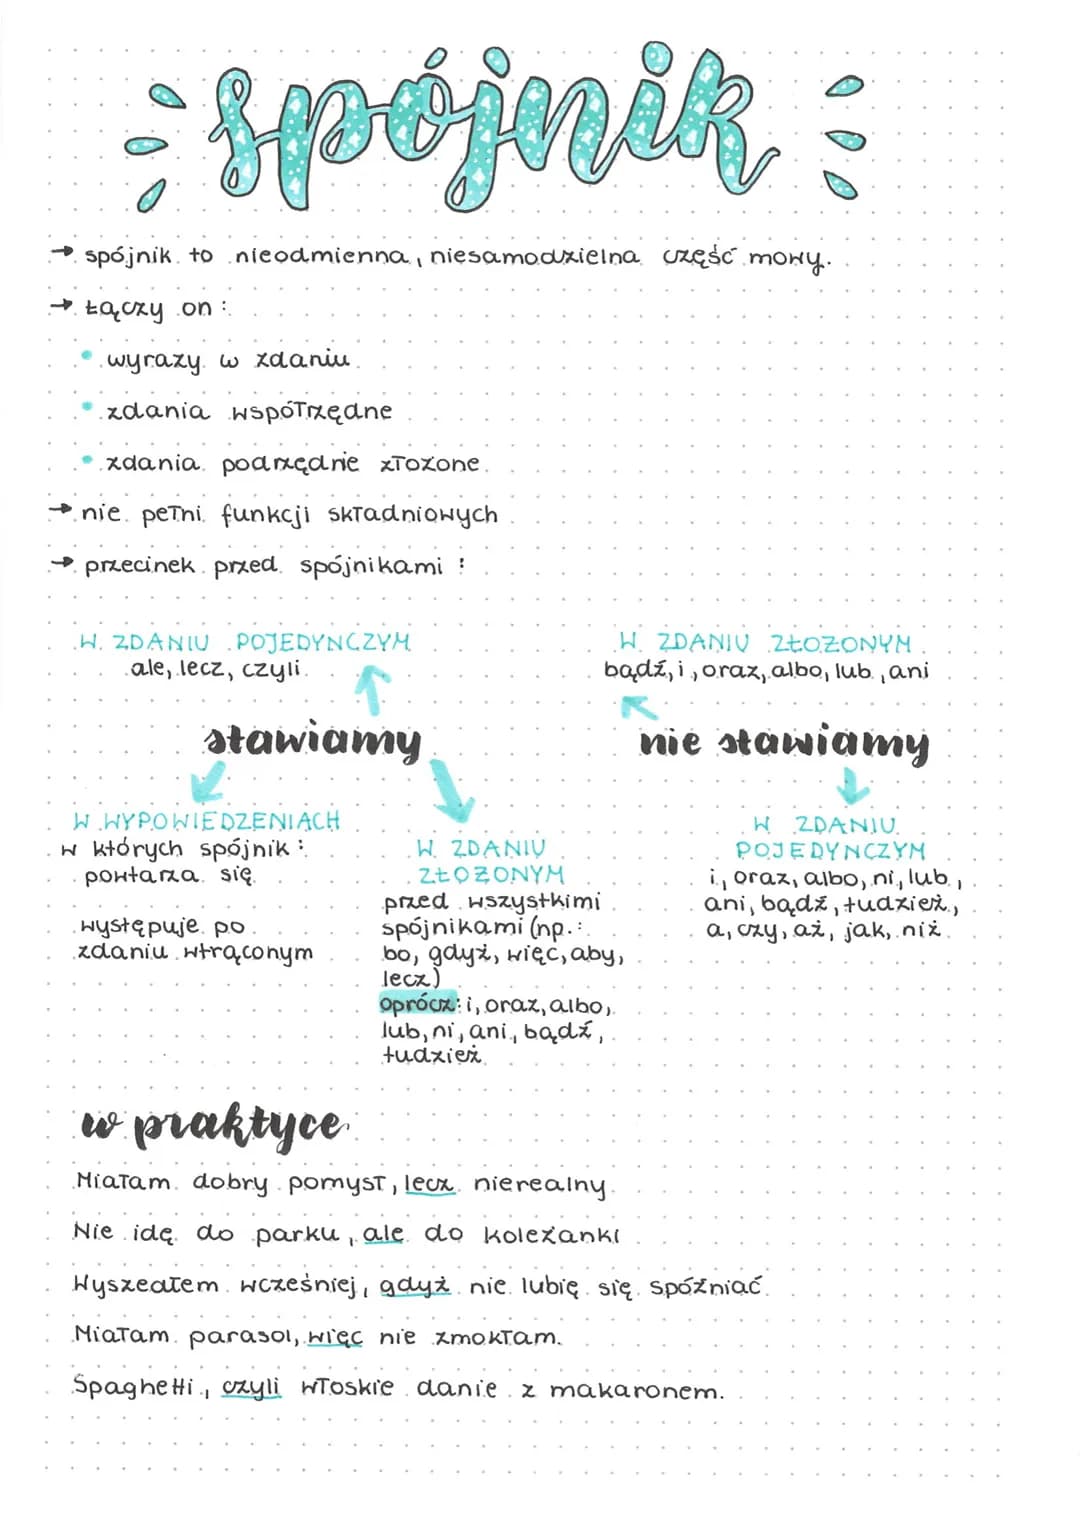 spójnik
→ spójnik to nieodmienna, niesamodzielna część mowy.
→ Łączy on:
• wyrazy w zdaniu
• zdania współrzędne
• zdania podrzędnie złożone
→ nie pełni funkcji składniowych
→ przecinek przed spójnikami:
W ZDANIU POJEDYNCZYM
ale, lecz, czyli
W ZDANIU ZŁOŻONYM
bądź, i, oraz, albo, lub, ani
stawiamy
nie stawiamy
W WYPOWIEDZENIACH
w których spójnik:
powtarza się
występuje po
zdaniu wtrąconym
W ZDANIU
ZŁOŻONYM
przed wszystkimi
spójnikami (np.:
bo, gdyż, więc, aby,
lecz)
oprócz: i, oraz, albo,
lub, ni, ani, bądź,
tudzież
W ZDANIU
POJEDYNCZYM
i, oraz, albo, ni, lub,
ani, bądź, tudzież,
a, czy, aż, jak, niż
w praktyce
Miałam dobry pomysł, lecz nierealny.
Nie idę do parku, ale do koleżanki
Wyszedłem wcześniej, gdyż nie lubię się spóźniać.
Miałam parasol, więc nie zmokłam.
Spaghetti, czyli włoskie danie z makaronem.